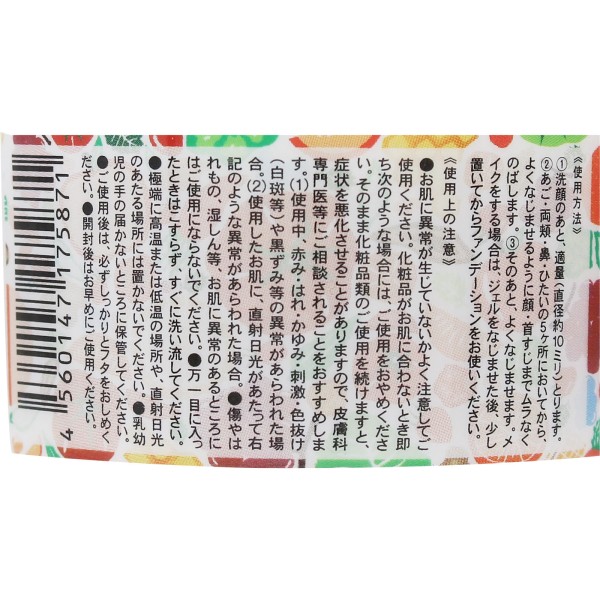 《使用方法》
①洗顔のあと、適量(直径約10ミリ)とります。
②あご・両頬・鼻・ひたいの5ヶ所においてから、
よくなじませるように顔・首すじまでムラなく
のばします。③そのあと、よくなじませます。メ
イクをする場合は、ジェルをなじませた後、少し
置いてからファンデーションをお使いください。
《使用上の注意》
●お肌に異常が生じていないかよく注意してご
使用ください。化粧品がお肌に合わないとき即
ち次のような場合には、ご使用をおやめくださ
い。そのまま化粧品類のご使用を続けますと、
症状を悪化させることがありますので、皮膚科
専門医等にご相談されることをおすすめしま
す。(1)使用中、赤み・はれ・かゆみ・刺激・色抜け
(白斑等)や黒ずみ等の異常があらわれた場
合。(2)使用したお肌に、直射日光があたって右
記のような異常があらわれた場合。●傷やは
れもの、湿しん等、お肌に異常のあるところに
はご使用にならないでください。●万一目に入っ
たときはこすらず、すぐに洗い流してください。
●極端に高温または低温の場所や、直射日光
のあたる場所には置かないでください。●乳幼
児の手の届かないところに保管してください。
●ご使用後は、必ずしっかりとフタをおしめく
ださい。●開封後はお早めにご使用ください。
4 560147 175871